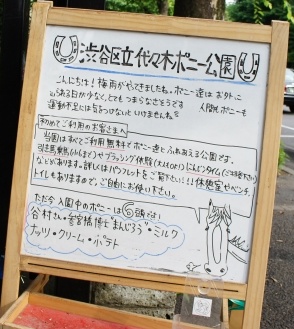 渋谷区立代々木ポニー公園
こんにちは！梅雨がやってきましたね。ポニー達はお外に
出られる日が少なく、とてもつまらなさそうです
人間もポニーも
運動不足には気をつけないといけませんね
初めてご利用のお客さまへ
当園はすべてご利用無料でポニー達とふれあえる公園です。
引き馬乗馬(小6まで)やブラッシング体験(大人もOK!)にんじんタイム
などがあります。詳しくはパンフレットをご覧下さい!!休憩室やベンチ、
トイレもありますので、ご自由にお使い下さい。
ただ今入園中のポニーは6頭
谷村さん・若宮橋博士・まんじろう・ミルク
ナッツ・クリーム・ポテト